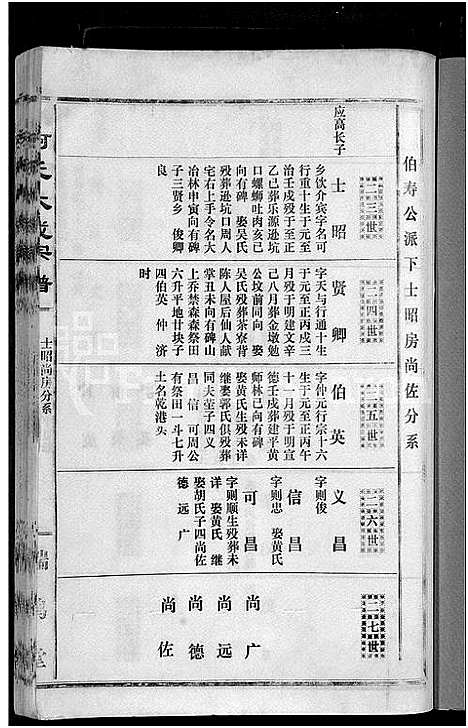 伯寿公派下士昭房尚佐分系
二三世
应高长子
士昭
乡饮介宾字名可
行重十生于元至
治壬戌殁于至正
乙已葬乐源逊坑
口螺蛳吐肉亥已
向有碑 娶吴氏
殁葬逊坑口周人
宅右上手令名大
冶林申寅向有碑
子三贤乡 俊卿
良
二四世
贤卿
字天与行通十生
于元至正丙戌三
月殁于明建文辛
己八月葬金墩勉
公坟前同向 娶
吴氏殁葬茶寮背
陈人屋后仙人献
掌丑未向有碑山
上乔禁森森祭田
六升平地廿块子
四伯英 仲 济
时
二五世
伯英
字仲元行宗十六
生于元至正丙午
十一月殁于明宣
德壬戌葬建平黄
师林已向有碑
娶黄氏生殁未详
继娶郭氏俱殁葬
同夫茔子四义
昌 信 可周公
有祭田一斗七升
土名乾港头
二六世
义昌
字则俊
信昌
字则忠 娶黄氏
可昌
字则顺生殁葬未
详 娶黄氏 继
娶胡氏子四尚佐
德 远 广
二七世
尚广
尚远
尚德
尚佐
士昭尚房分系